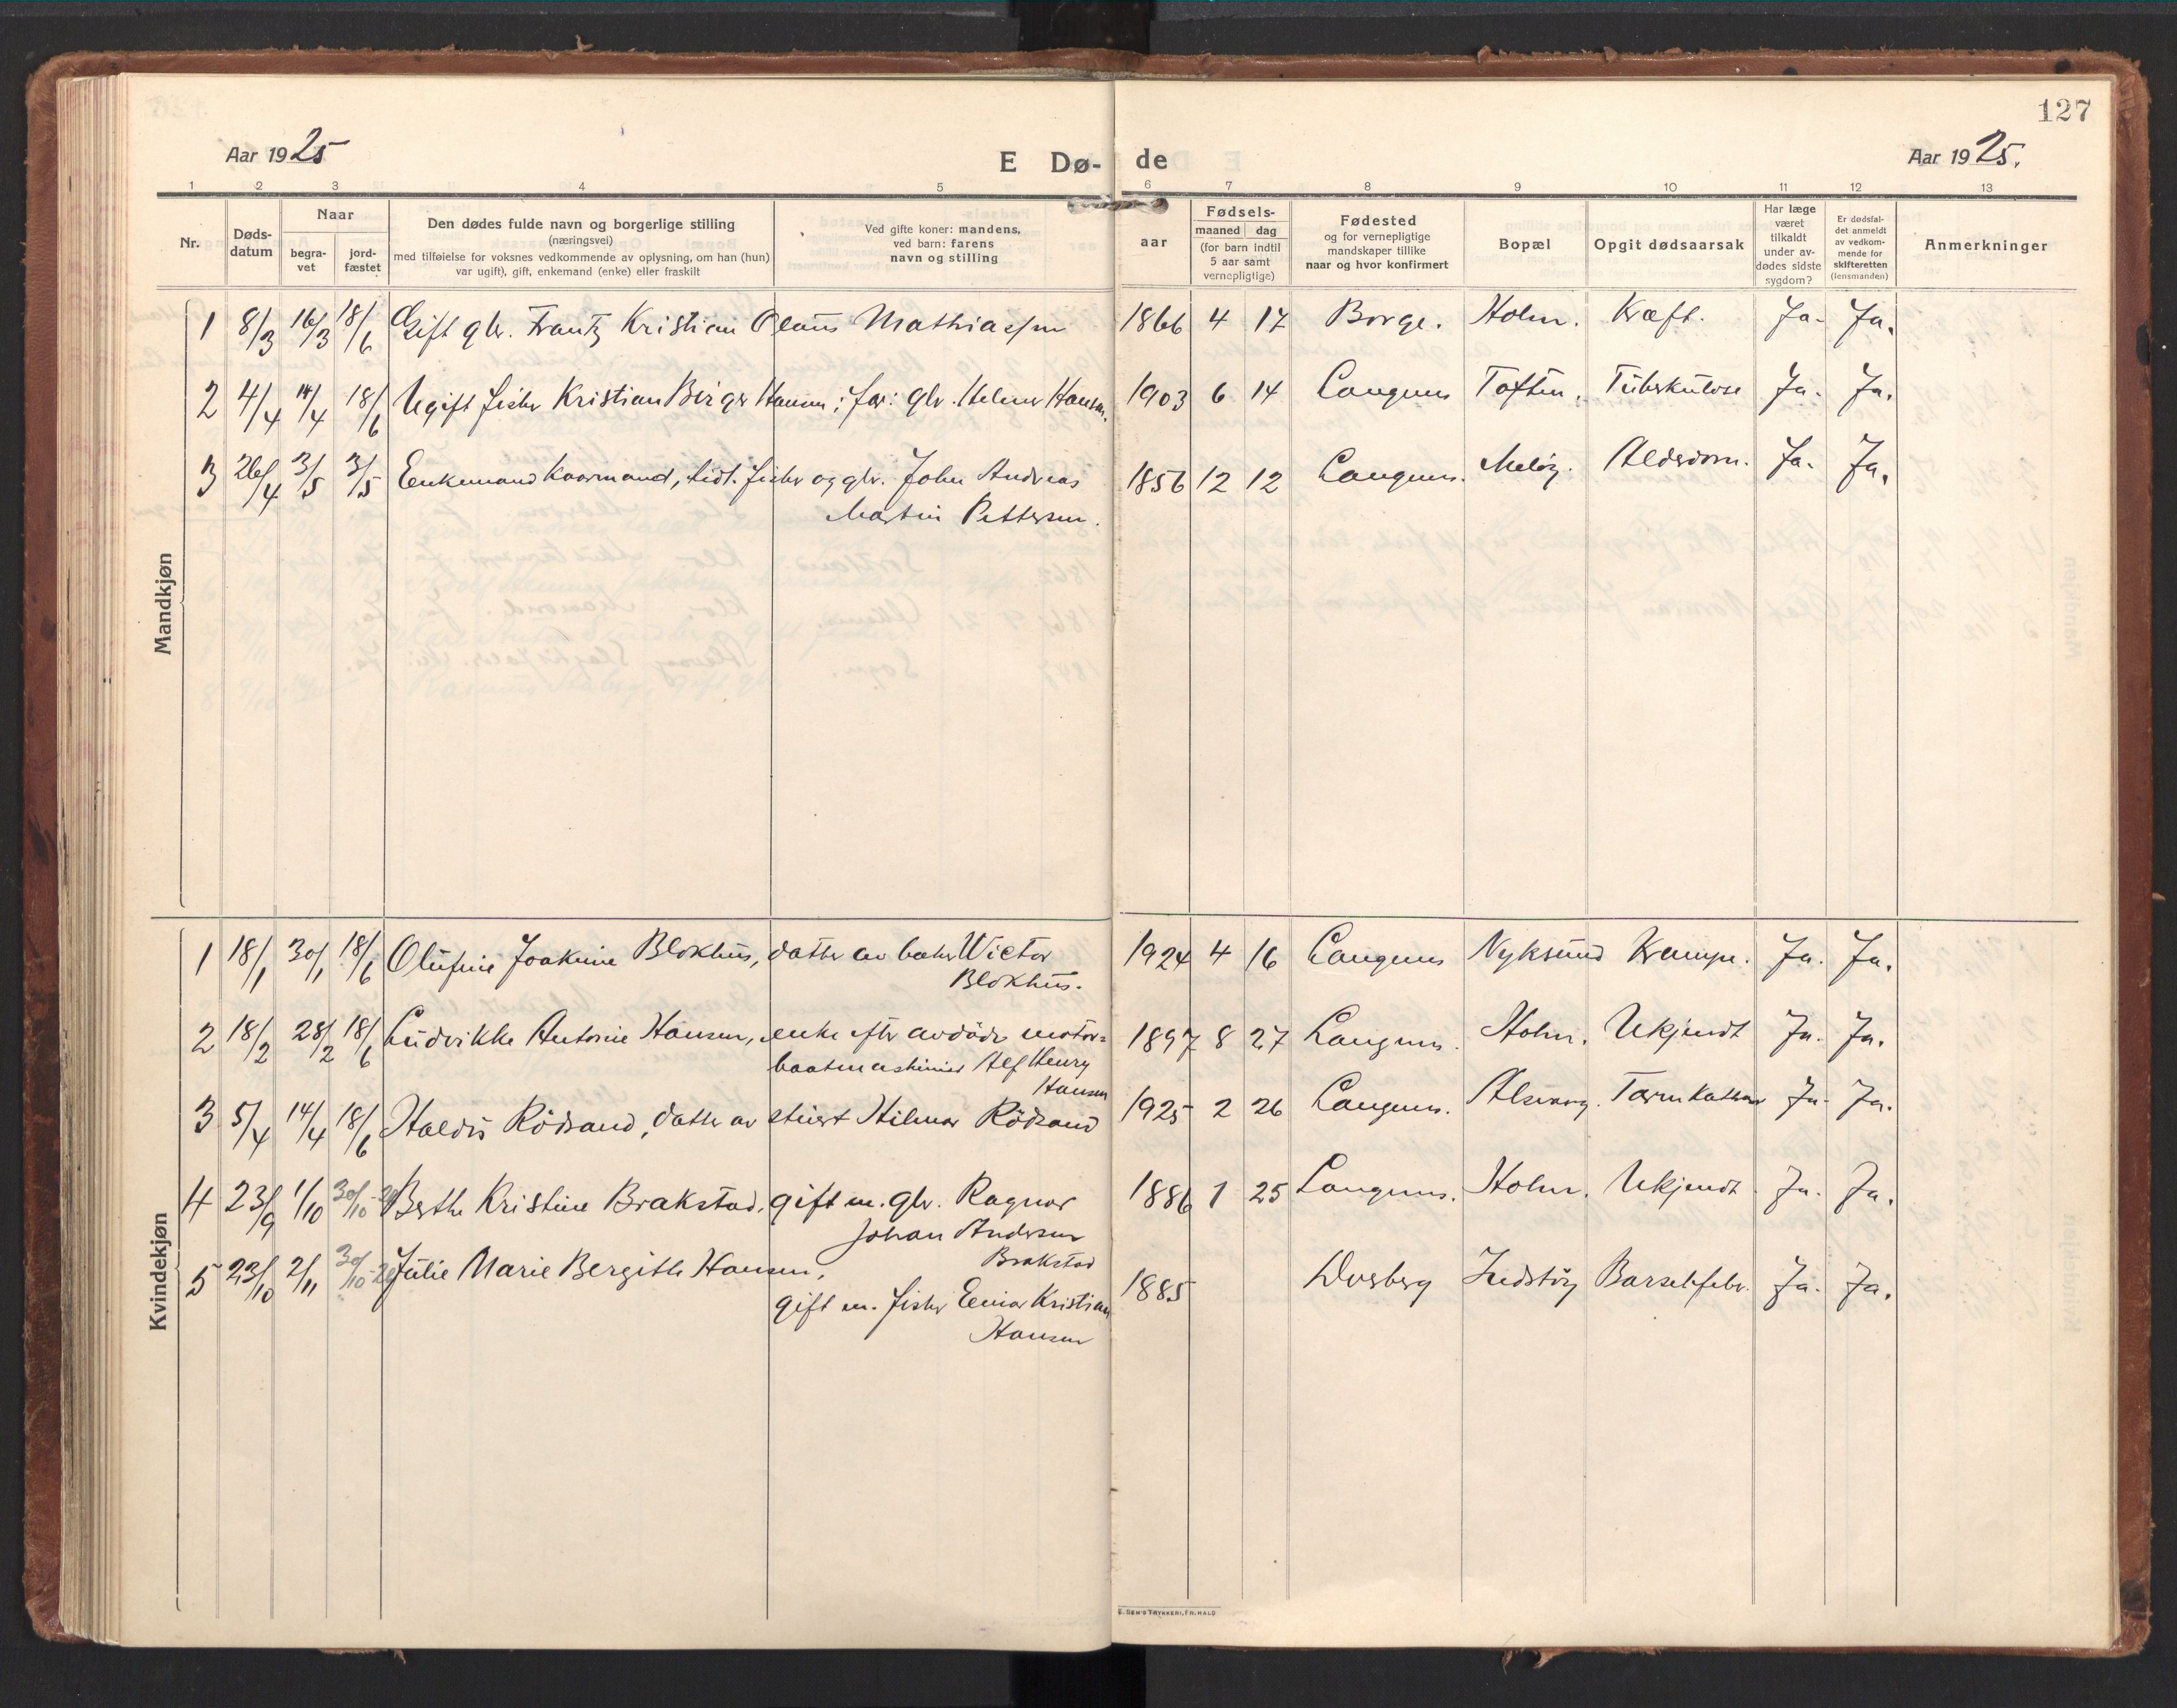 127
Aar 1925
E Dø-
de
Aar 1925.
1 2 3 4 5 6 7 8 9 10 11 12 13
Nr.
Døds-
datum
Naar
begra-
vet
jord-
fæstet
Den dødes fulde navn og borgerlige stilling
(næringsvei)
med tilføielse for voksnes vedkommende av oplysning, om han (hun)
var ugift), gift, enkemand (enke) eller fraskilt
Ved gifte koner: mandens,
ved barn: farens
navn og stilling
aar
Fødsels-
maaned dag
(for barn indtil
5 aar samt
vernepligtige)
Fødested
og for vernepligtige
mandskaper tillike
naar og hvor konfirmert
Bopæl
Opgit dødsaarsak
Har læge
været
tilkaldt
under av-
dødes sidste
sygdom?
Er dødsfal-
det anmeldt
av vedkom-
mende for
skifteretten
(lensmanden)
Anmerkninger
Mandkjøn
1 8/3 16/3 18/6 Gift gbr. Frantz Kristian Olaus Mathiassen 1866 4 17 Borge. Holm. Kræft. Ja. Ja.
2 4/4 14/4 18/6 Ugift fisker Kristian Birger Hansen; far: gbr. Helmer Hansen. 1903 6 14 Langenes Toften. Tuberkulose Ja. Ja.
3 26/4 3/5 3/5 Enkemand kaarmand, tidl. fisker og gbr. John Andreas 1856 12 12 Langenes. Meløy. Alderdom. Ja. Ja.
Martin Pettersen.
Kvindekjøn
1 18/1 30/1 18/6 Olufine Joakime Blokhus, datter av baker Wictor 1924 4 16 Langenes Nyksund Krampe. Ja. Ja.
Blokhus.
2 18/2 28/2 18/6 Ludvikke Antonie Hansen, enke efter avdøde motor= 1897 8 27 Langenes. Holm. Ukjendt Ja. Ja.
baatmaskinist Alf Henry
Hansen
3 5/4 14/4 18/6 Haldis Rödsand, datter av stuert Hilmar Rödsand 1925 2 26 Langenes. Alsvaag. Tarmkatharr Ja. Ja.
4 23/9 1/10 30/10- Berthe Kristine Brakstad, gift m. gbr. Ragnar 1886 1 25 Langenes. Holm. Ukjendt Ja. Ja.
Johan Andersen
Brakstad
5 23/10 2/11 30/10- Julie Marie Bergitte Hansen, 1885 Dverberg Indstöy Barselfeber. Ja. Ja.
gift m. fisker Einar Kristian
Hansen
E. SEM'S TRYKKERI, FR.HALD